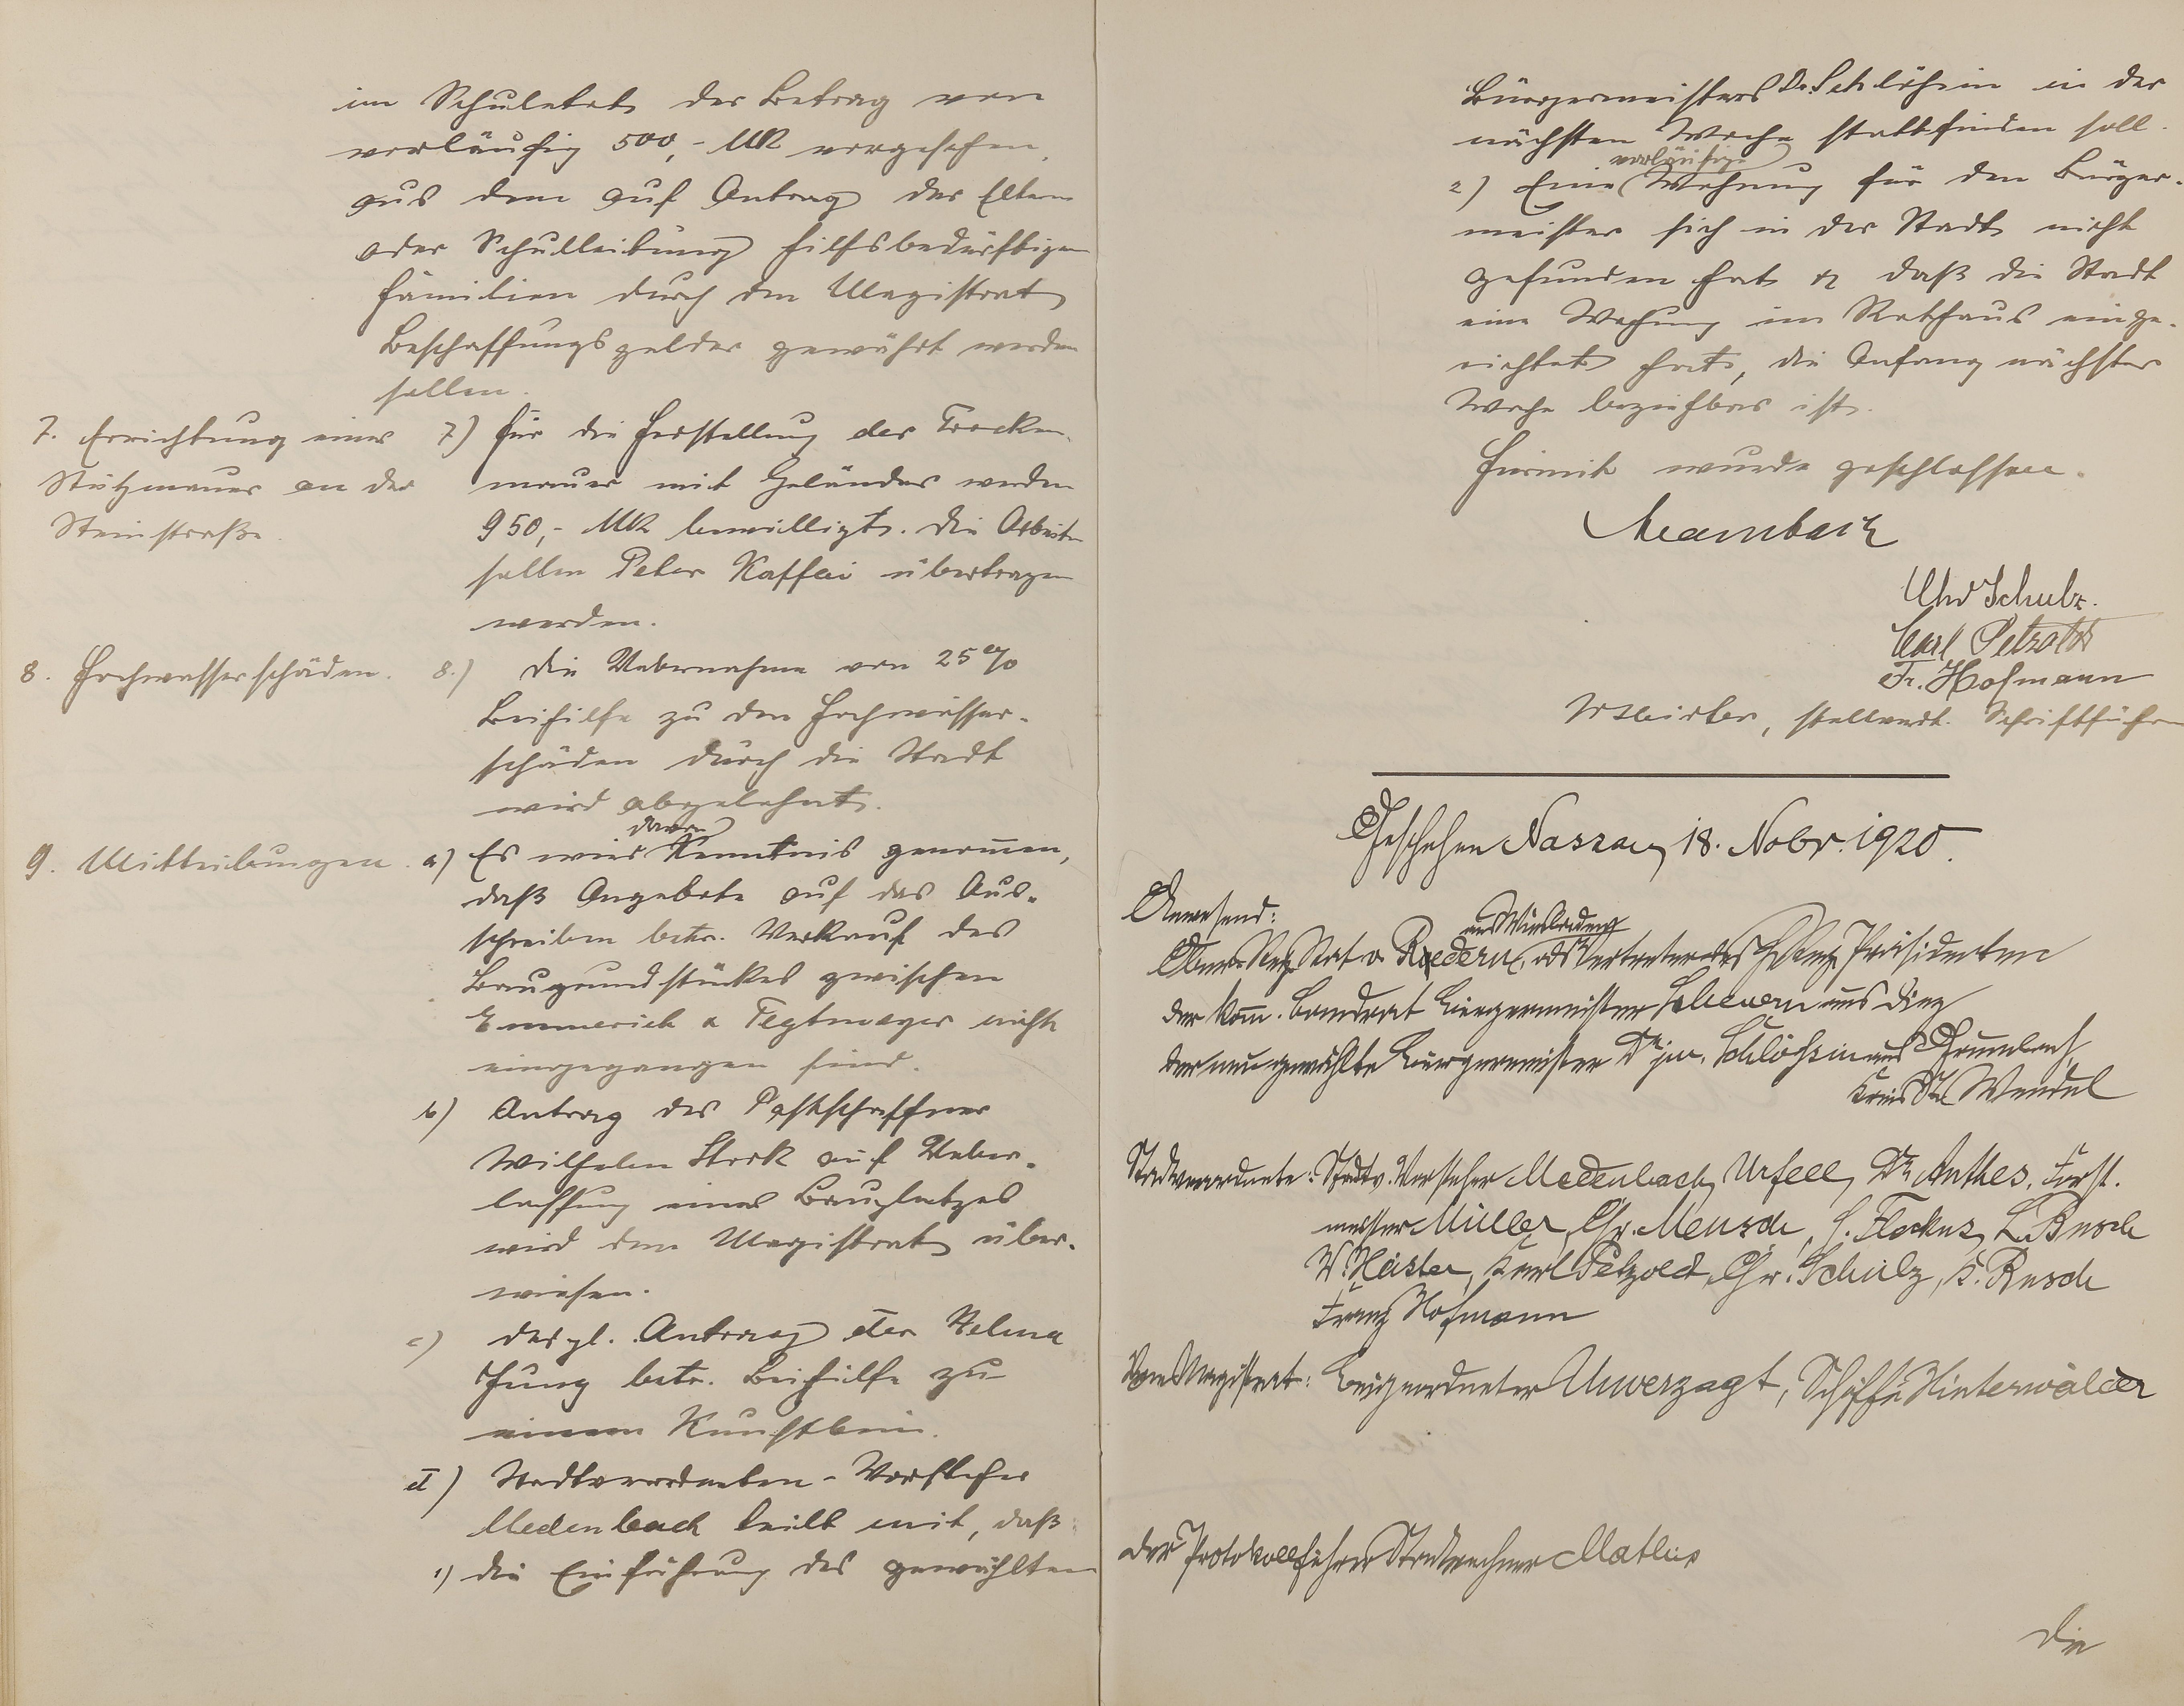 im Schuletat der Betrag von
vorläufig 500,- Mk vorgesehen,
aus dem auf Antrag der Eltern
oder Schulleitung hilfsbedürftigen
Familien durch den Magistrat
Beschaffungsgelder gewährt werden
sollen.
7. Errichtung einer
Stützmauer an der
Steinstraße.
7) Für die Herstellung der Trocken-
mauer mit Geländer werden
950,- Mk bewilligt. Die Arbeiten
sollen Peter Kaffai übertragen
werden.
8. Hochwasserschäden.
8.) Die Uebernahme von 25 %
Beihilfe zu den Hochwasser-
schäden durch die Stadt
wird abgelehnt.
9. Mitteilungen.
a) Es wird davon Kenntnis genommen,
daß Angebote auf das Aus-
schreiben betr. Verkauf des
Baugrundstückes zwischen
Emmerich & Tegtmeyer nicht
eingegangen sind.
b) Antrag des Postschaffner
Wilhelm Stork auf Ueber-
lassung eines Bauplatzes
wird dem Magistrat über-
wiesen.
c) desgl. Antrag der Selma
Jung betr. Beihilfe zu
einem Kunstbein.
d) Stadtverordneten-Vorsteher
Medenbach teilt mit, daß
1) die Einführung des gewählten
Bürgermeisters Dr. Schlöhsin in der
nächsten Woche stattfinden soll.
2) Eine vorläufige Wohnung für den Bürger-
meister sich in der Stadt nicht
gefunden hat & daß die Stadt
eine Wohnung im Rathaus einge-
richtet hat, die Anfang nächster
Woche beziehbar ist.
Hiermit wurde geschlossen.
Medenbach
Chr Schulz.
Carl Petzold
Fr. Hofmann
stellvert. Schriftführer
Geschehen Nassau, 18. Novbr. 1920.
Anwesend:
Ober-Reg. Rat v. Roedern, aus Wiesbaden als Vertreter des H. Reg. Präsidenten
der kom. Landrat Bürgermeister Scheuern aus Diez
der neu gewählte Bürgermeister Dr jur. Schlöhsin aus Grumbach,
Kreis St. Wendel
Stadtverordnete: Stadtv. Vorsteher Medenbach, Urfell, Dr Anthes, Forst-
meister Müller, Chr. Mensch, H. Flockus, L. Busch
W. Häister, Karl Petzold, Chr. Schulz, K. Rusch
Franz Hofmann
Vom Magistrat: Beigeordneter Unverzagt, Schöffe Hinterwälder
Der Protokollführer Stadtrechner Matlus
Die